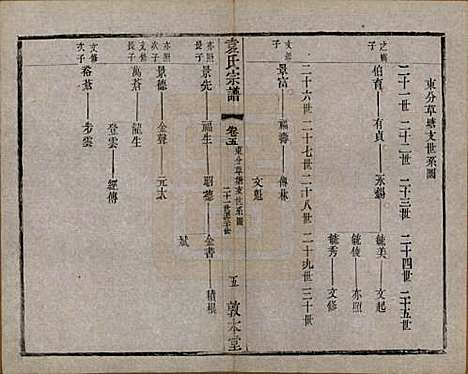 東分草塘支世系圖
二十一世 二十二世 二十三世 二十四世 二十五世
之
子
伯育 有貞 永錫 毓美 文起
毓俊 亦照
毓秀 文修
二十六世 二十七世 二十八世 二十九世 三十世
文
子
景富 福壽 傳林
文魁
袁氏宗譜
卷五
東分草塘支世系圖
二十一世至三十世
五
敦本堂
亦照
子
景先 福生 昭德 金書 積根
斌
亦照
次子
景德 金聲 元太
文修
子
萬蒼 龍生
登雲 經傳
文修
次子
裕蒼 步雲